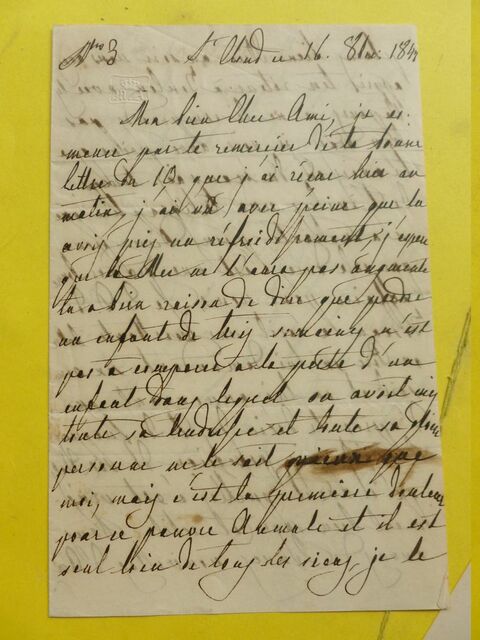 No 3 St Cloud ce 16. 8bre. 1847
Mon bien Cher Ami, je com
mence par te remercier de ta bonne
lettre du 13, que j'ai reçue hier au
matin, j'ai vu avec peine que tu
avois pris un réfroidissement, j'espère
que la Mer ne l'aura pas augmenté
tu a bien raison de dire que perdre
un enfant de trois semaines n'est
pas à comparer à la perte d'un
enfant dans lequel on avoit mis
toute sa tendresse et toute sa gloire
personne ne le sait mieux que
moi, mais c'est la première douleur
pour ce pauvre Aumale et il est
seul loin de tous les siens, je le